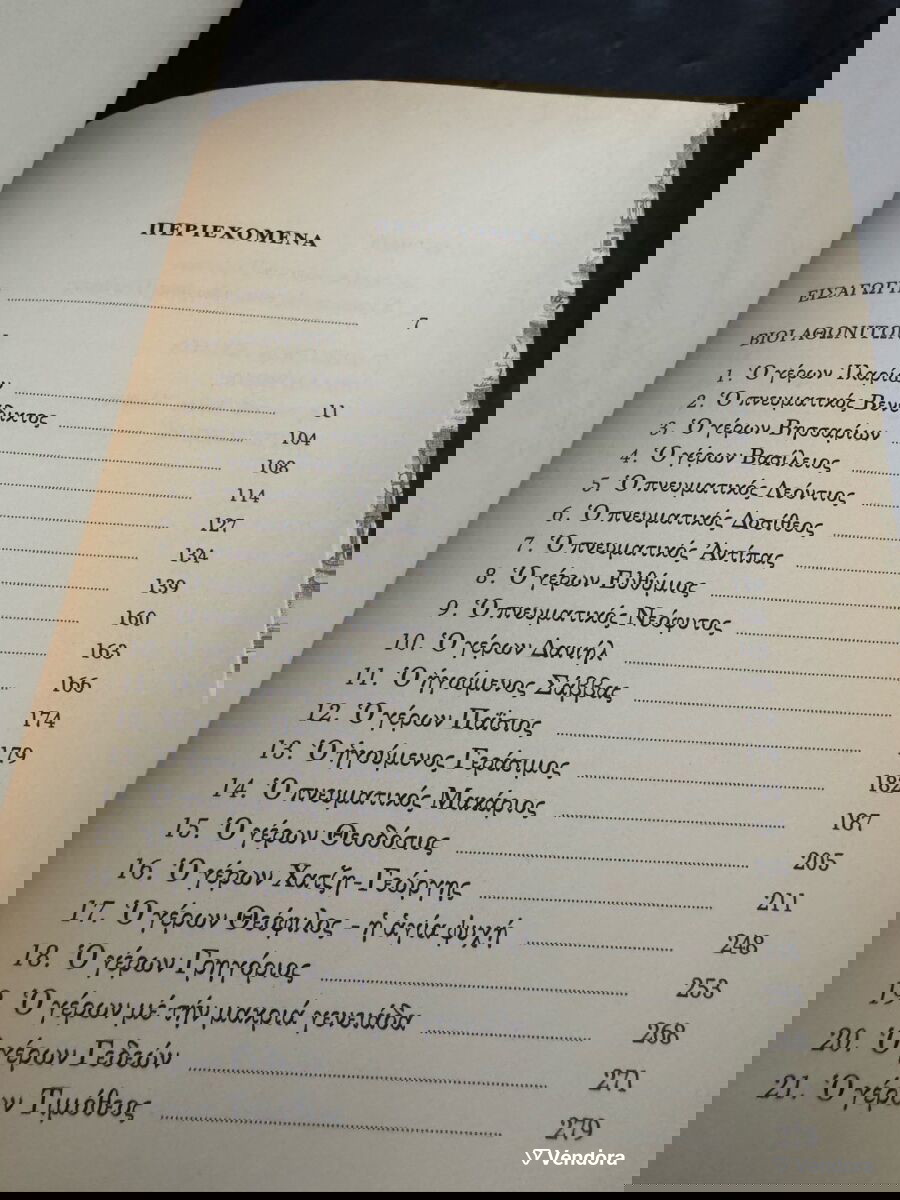 ΠΕΡΙΕΧΟΜΕΝΑ
ΕΙΣΑΓΩΓΗ 7
ΒΙΟΙ ΑΘΩΝΙΤΩΝ
1. Ὁ γέρων Ἱλαρίων 11
2. Ὁ πνευματικός Βενέδικτος 104
3. Ὁ γέρων Βησσαρίων 108
4. Ὁ γέρων Βασίλειος 114
5. Ὁ πνευματικός Λεόντιος 127
6. Ὁ πνευματικός Δοσίθεος 134
7. Ὁ πνευματικός Ἀντίπας 139
8. Ὁ γέρων Εὐθύμιος 160
9. Ὁ πνευματικός Νεόφυτος 163
10. Ὁ γέρων Δανιήλ 166
11. Ὁ ἡγούμενος Σάββας 174
12. Ὁ γέρων Παΐσιος 179
13. Ὁ ἡγούμενος Γεράσιμος 182
14. Ὁ πνευματικός Μακάριος 187
15. Ὁ γέρων Θεοδόσιος 205
16. Ὁ γέρων Χατζη-Γεώργης 211
17. Ὁ γέρων Θεόφιλος - ἡ ἁγία ψυχή 248
18. Ὁ γέρων Γρηγόριος 253
19. Ὁ γέρων μέ τήν μακριά γενειάδα 268
20. Ὁ γέρων Γεδεών 271
21. Ὁ γέρων Τιμόθεος 279
Vendora